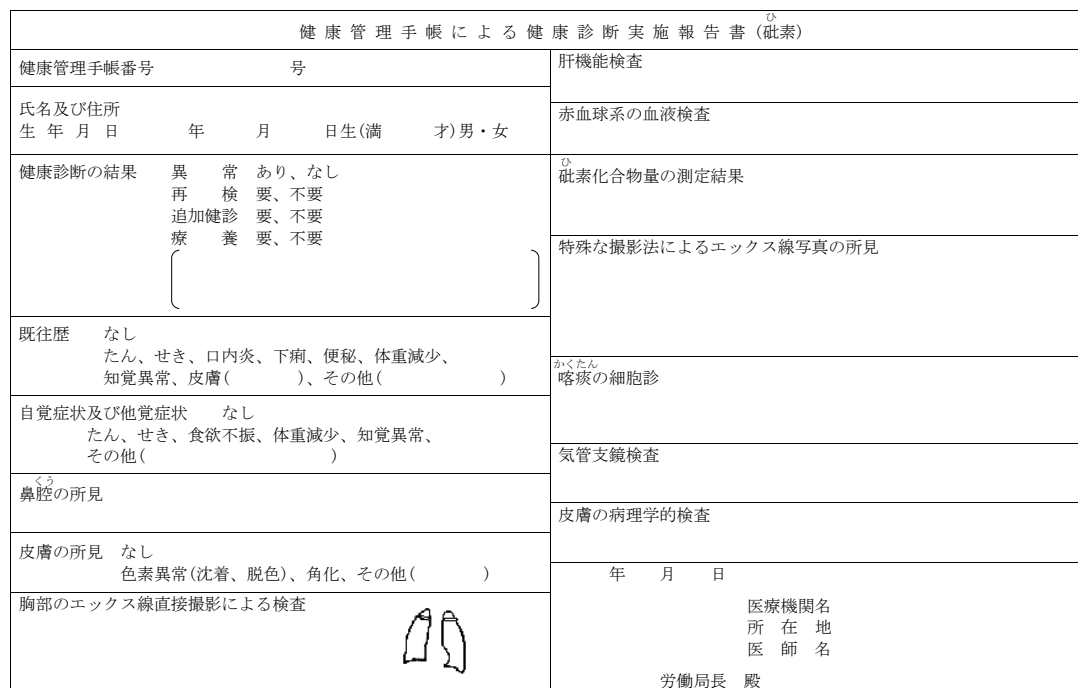 健康管理手帳による健康診断実施報告書(砒素)
ひ
健康管理手帳番号 号
氏名及び住所
生年月日 年 月 日生(満 才)男・女
健康診断の結果 異 常 あり、なし
再 検 要、不要
追加健診 要、不要
療 養 要、不要
既往歴 なし
たん、せき、口内炎、下痢、便秘、体重減少、
知覚異常、皮膚( )、その他( )
自覚症状及び他覚症状 なし
たん、せき、食欲不振、体重減少、知覚異常、
その他( )
くう
鼻腔の所見
皮膚の所見 なし
色素異常(沈着、脱色)、角化、その他( )
胸部のエックス線直接撮影による検査
肝機能検査
赤血球系の血液検査
ひ
砒素化合物量の測定結果
特殊な撮影法によるエックス線写真の所見
かくたん
喀痰の細胞診
気管支鏡検査
皮膚の病理学的検査
年 月 日
医療機関名
所 在 地
医 師 名
労働局長 殿